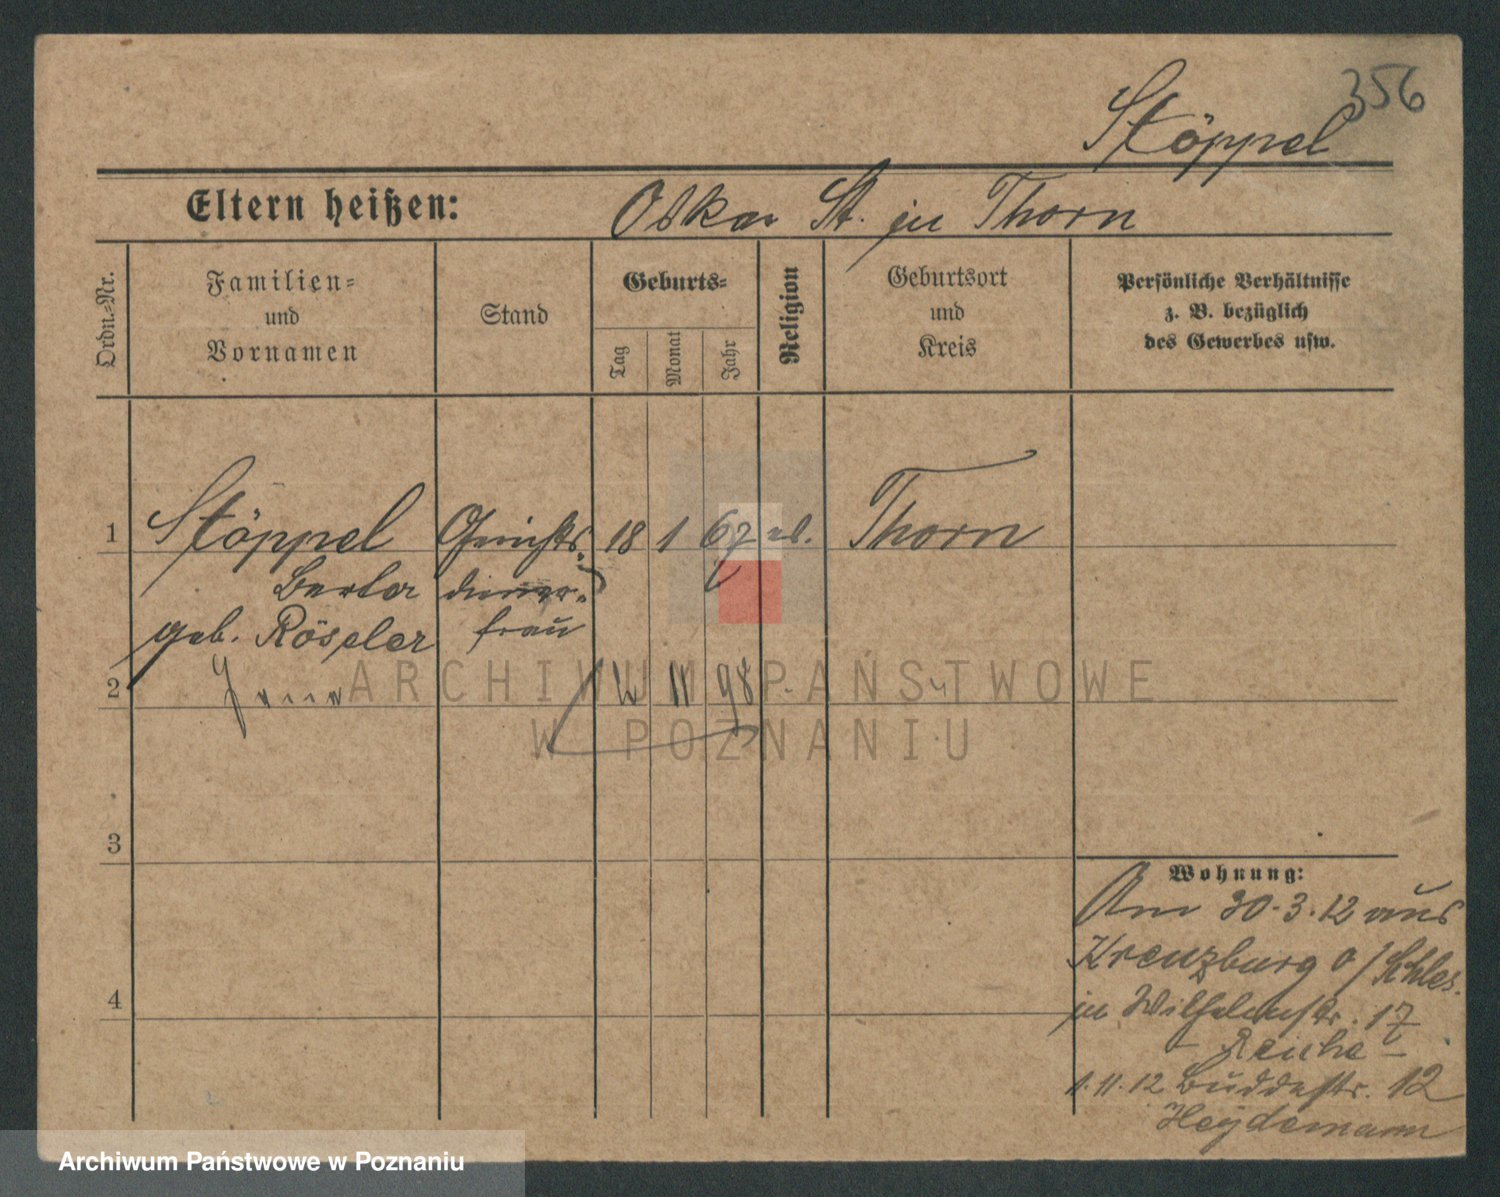 356
Stöppel
Eltern heißen: Oskar St. in Thorn
Ordn.=Nr.
Familien=
und
Vornamen
Stand
Geburts=
Tag
Monat
Jahr
Religion
Geburtsort
und
Kreis
Persönliche Verhältnisse
z. B. bezüglich
des Gewerbes usw.
1 Stöppel Gerichts= 18 1 67 ev. Thorn
Berta diener=
geb. Röseler frau
2 11 98
3
4
Wohnung:
Am 30.3.12 aus
Kreuzburg O/Schles.
in Wilhelmstr. 17
- Reiche -
1.11.12 Buddestr. 12
Heydemann
ARCHIWUM PAŃSTWOWE
W POZNANIU
Archiwum Państwowe w Poznaniu